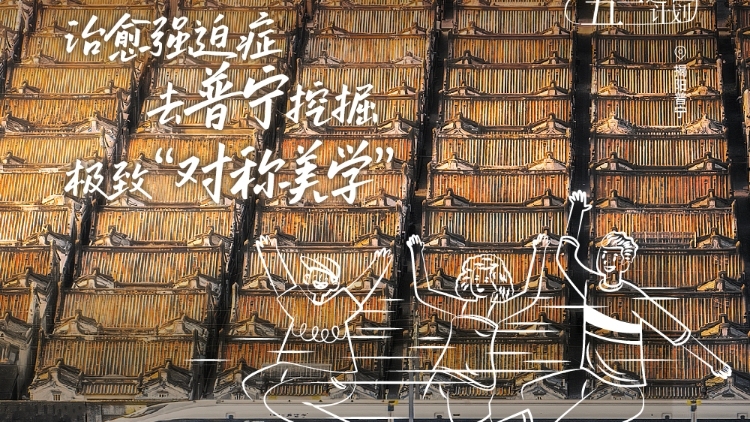 治愈强迫症
去普宁挖掘
极致“对称美学”
五一计划
揭阳普宁